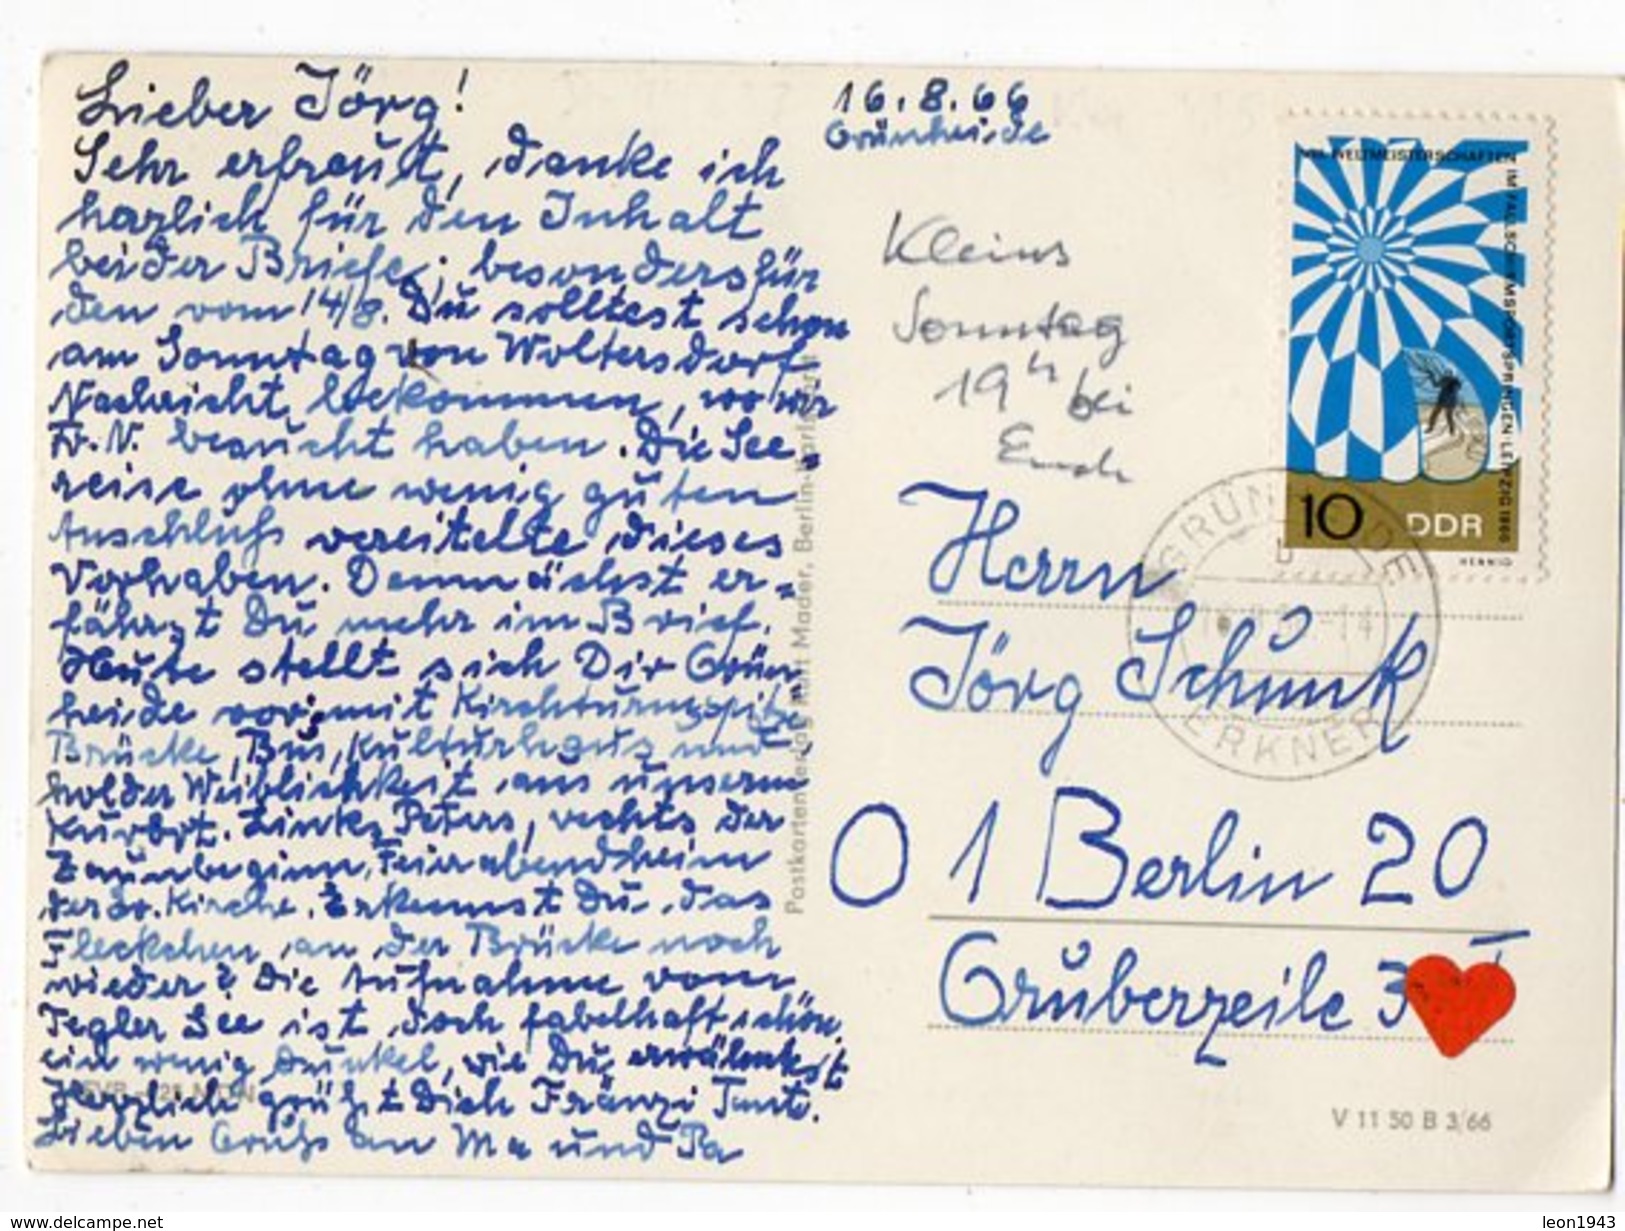 Lieber Jörg!
Sehr erfreut, danke ich
herzlich für den Inhalt
beider Briefe, besonders für
den vom 14/8. Du solltest schon
am Sonntag von Woltersdorf
Nachricht bekommen, wo wir
Fr. N. besucht haben. Die See-
reise ohne wenig guten
Anschluß vereitelte dieses
Vorhaben. Demnächst er-
fährst Du mehr im Brief.
Heute stellt sich Dir Grün-
heide vor; mit Kirchturmspitze
Brücke, Bus, Kulturhaus und
holder Weiblichkeit aus unserm
Kurort. Links Peters, rechts der
Zaunbeginn, Feierabendheim
der Kirche. Erkennst Du das
Fleckchen an der Brücke noch
wieder? Die Aufnahme vom
Tegler See ist doch fabelhaft schön
ein wenig dunkel, wie Du erwähntest
Herzlich grüßt Dich Fränzi Tante.
Lieben Gruß an Ma und Pa
16.8.66
Grünheide
Kleins
Sonntag
19 h bei
Euch
Herrn
Jörg Schunk
O 1 Berlin 20
Gruberzeile 3
WELTMEISTERSCHAFTEN
IM FALLSCHIRMSPORTSPRINGEN LEIPZIG 1966
10 DDR
HENNIG
GRÜNHEIDE
b
ERKNER
Postkartenverlag Kurt Mader, Berlin-Karlshorst
V 11 50 B 3/66
www.delcampe.net
leon1943